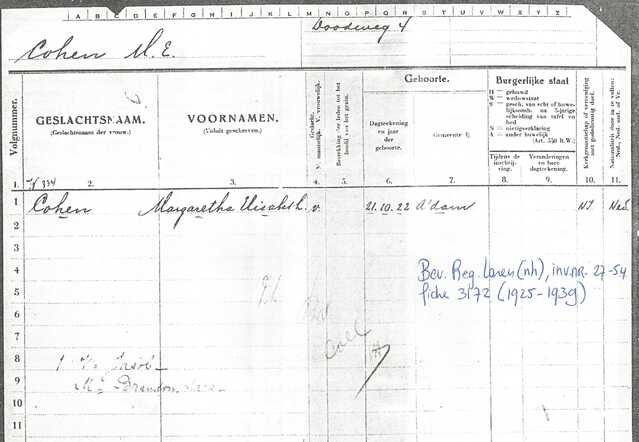 A B C D E F G H I J K L M N O P Q R S T U V W X Y Z
Doodweg 4
Cohen M. E.
Volgnummer.
GESLACHTSNAAM.
(Geslachtsnaam der vrouw.)
VOORNAMEN.
(Voluit geschreven.)
Geslacht.
M. mannelijk. V. vrouwelijk.
Betrekking der leden tot het
hoofd van het gezin.
Geboorte.
Dagteekening
en jaar
der
geboorte.
Gemeente
Burgerlijke staat
H = gehuwd
W = weduwstaat
S = gesch. van echt of huwe-
lijksontb. na 5-jarige
scheiding van tafel en
bed
N = nietigverklaring
A = ander huwelijk
(Art. 550 B.W.)
Tijdens de
inschrij-
ving.
Veranderingen
en hare
dagteekening.
Kerkgenootschap of vereeniging
met godsdienstig doel.
Nationaliteit door in te vullen:
Ned., Ned. ond. of Vr.
1. 2. 3. 4. 5. 6. 7. 8. 9. 10. 11.
1 Cohen Margaretha Elisabeth. v. 21.10.22 A'dam NI Ned
2
3
4
Bev. Reg. Laren (nh), inv.nr. 27-54
5
fiche 3172 (1925-1939)
6
7
8
V. Jacob
9
M.
10
11